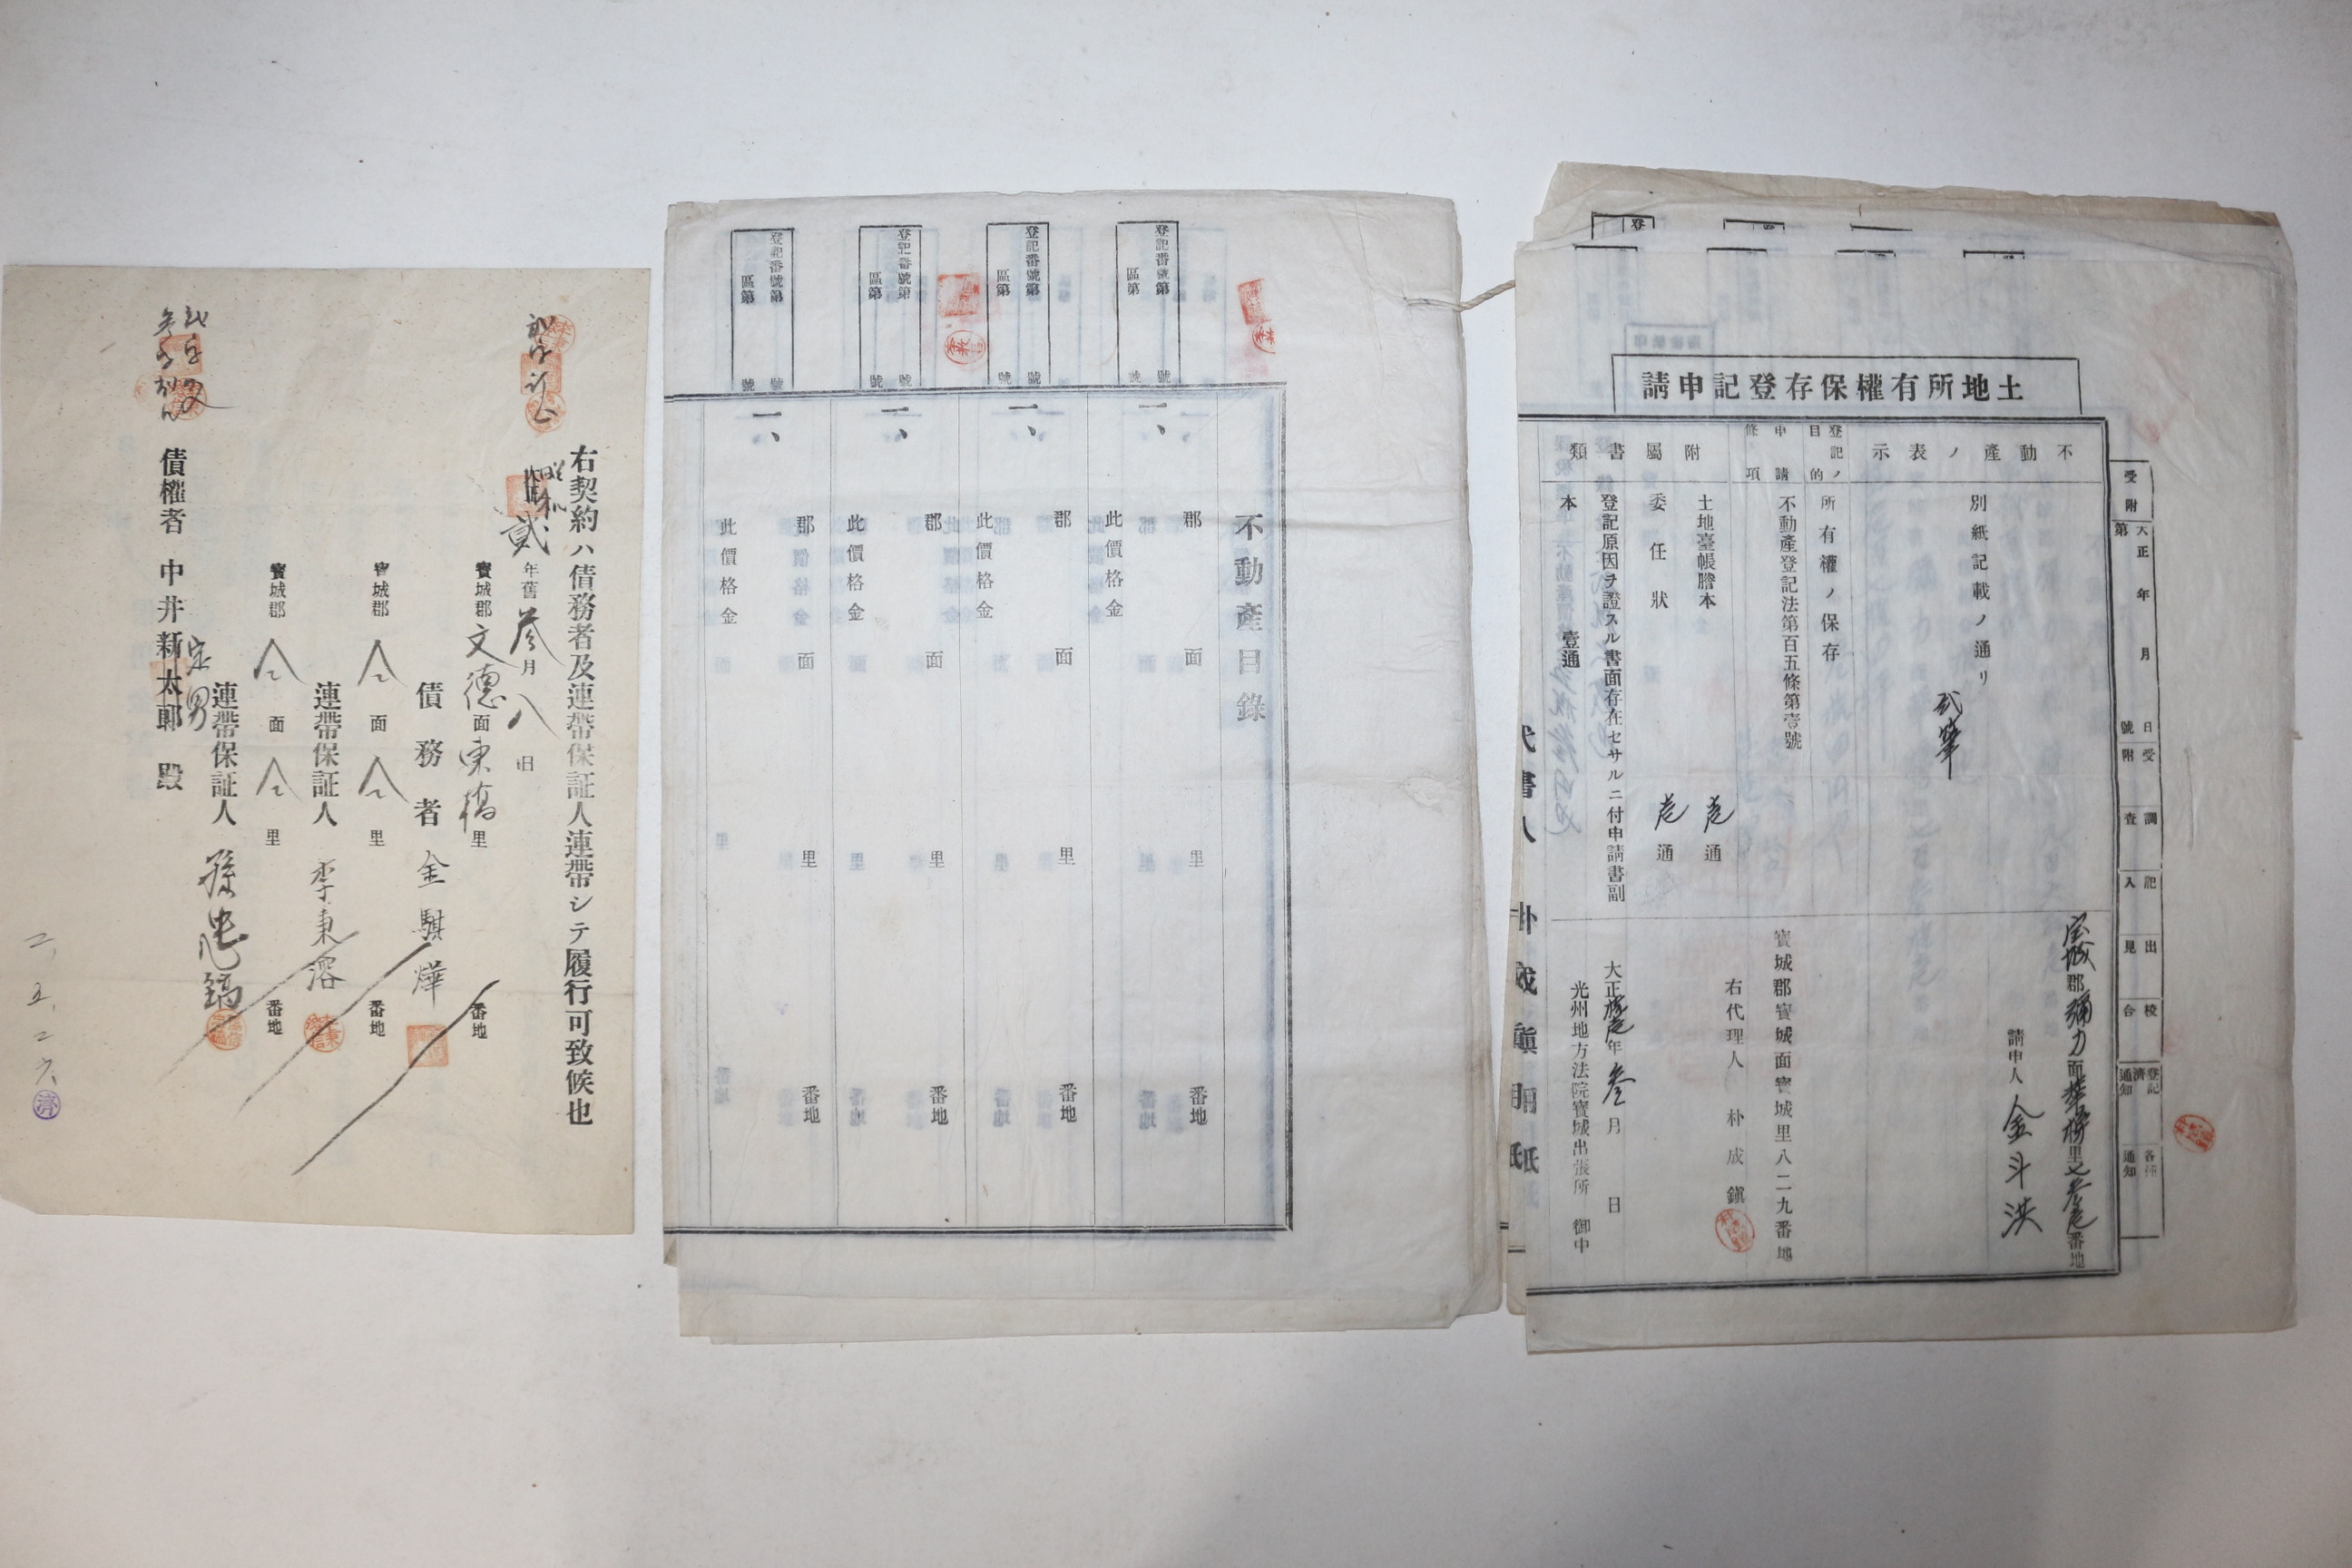 土地所有權保存登記申請
受附
大正 年 月 日
第 號
受附
調査
記入
出見
校合
登記濟通知
各種通知
不動產ノ表示
別紙記載ノ通リ
貳筆
登記ノ目的
所有權ノ保存
申請條項
不動產登記法第百五條第壹號
附屬書類
土地臺帳謄本 壱通
委任狀 壱通
登記原因ヲ證スル書面存在セサルニ付申請書副
本 壹通
郡 面 里 番地
請申人 金斗洪
寳城郡寳城面寳城里八二九番地
右代理人 朴成鎭
大正 年 叁月 日
光州地方法院寳城出張所 御中
不動產目錄
登記番號第 號
區第 號
一、 郡 面 里 番地
此價格金
登記番號第 號
區第 號
一、 郡 面 里 番地
此價格金
登記番號第 號
區第 號
一、 郡 面 里 番地
此價格金
登記番號第 號
區第 號
一、 郡 面 里 番地
此價格金
右契約ハ債務者及連帶保証人連帶シテ履行可致候也
貳年舊叁月八日
寳城郡文德面東橋里 番地
債務者 金騏燁
寳城郡 面 里 番地
連帶保証人 李秉溶
寳城郡 面 里 番地
連帶保証人 孫 鎬
債權者 中井新太郎 殿
二、五、二六
濟